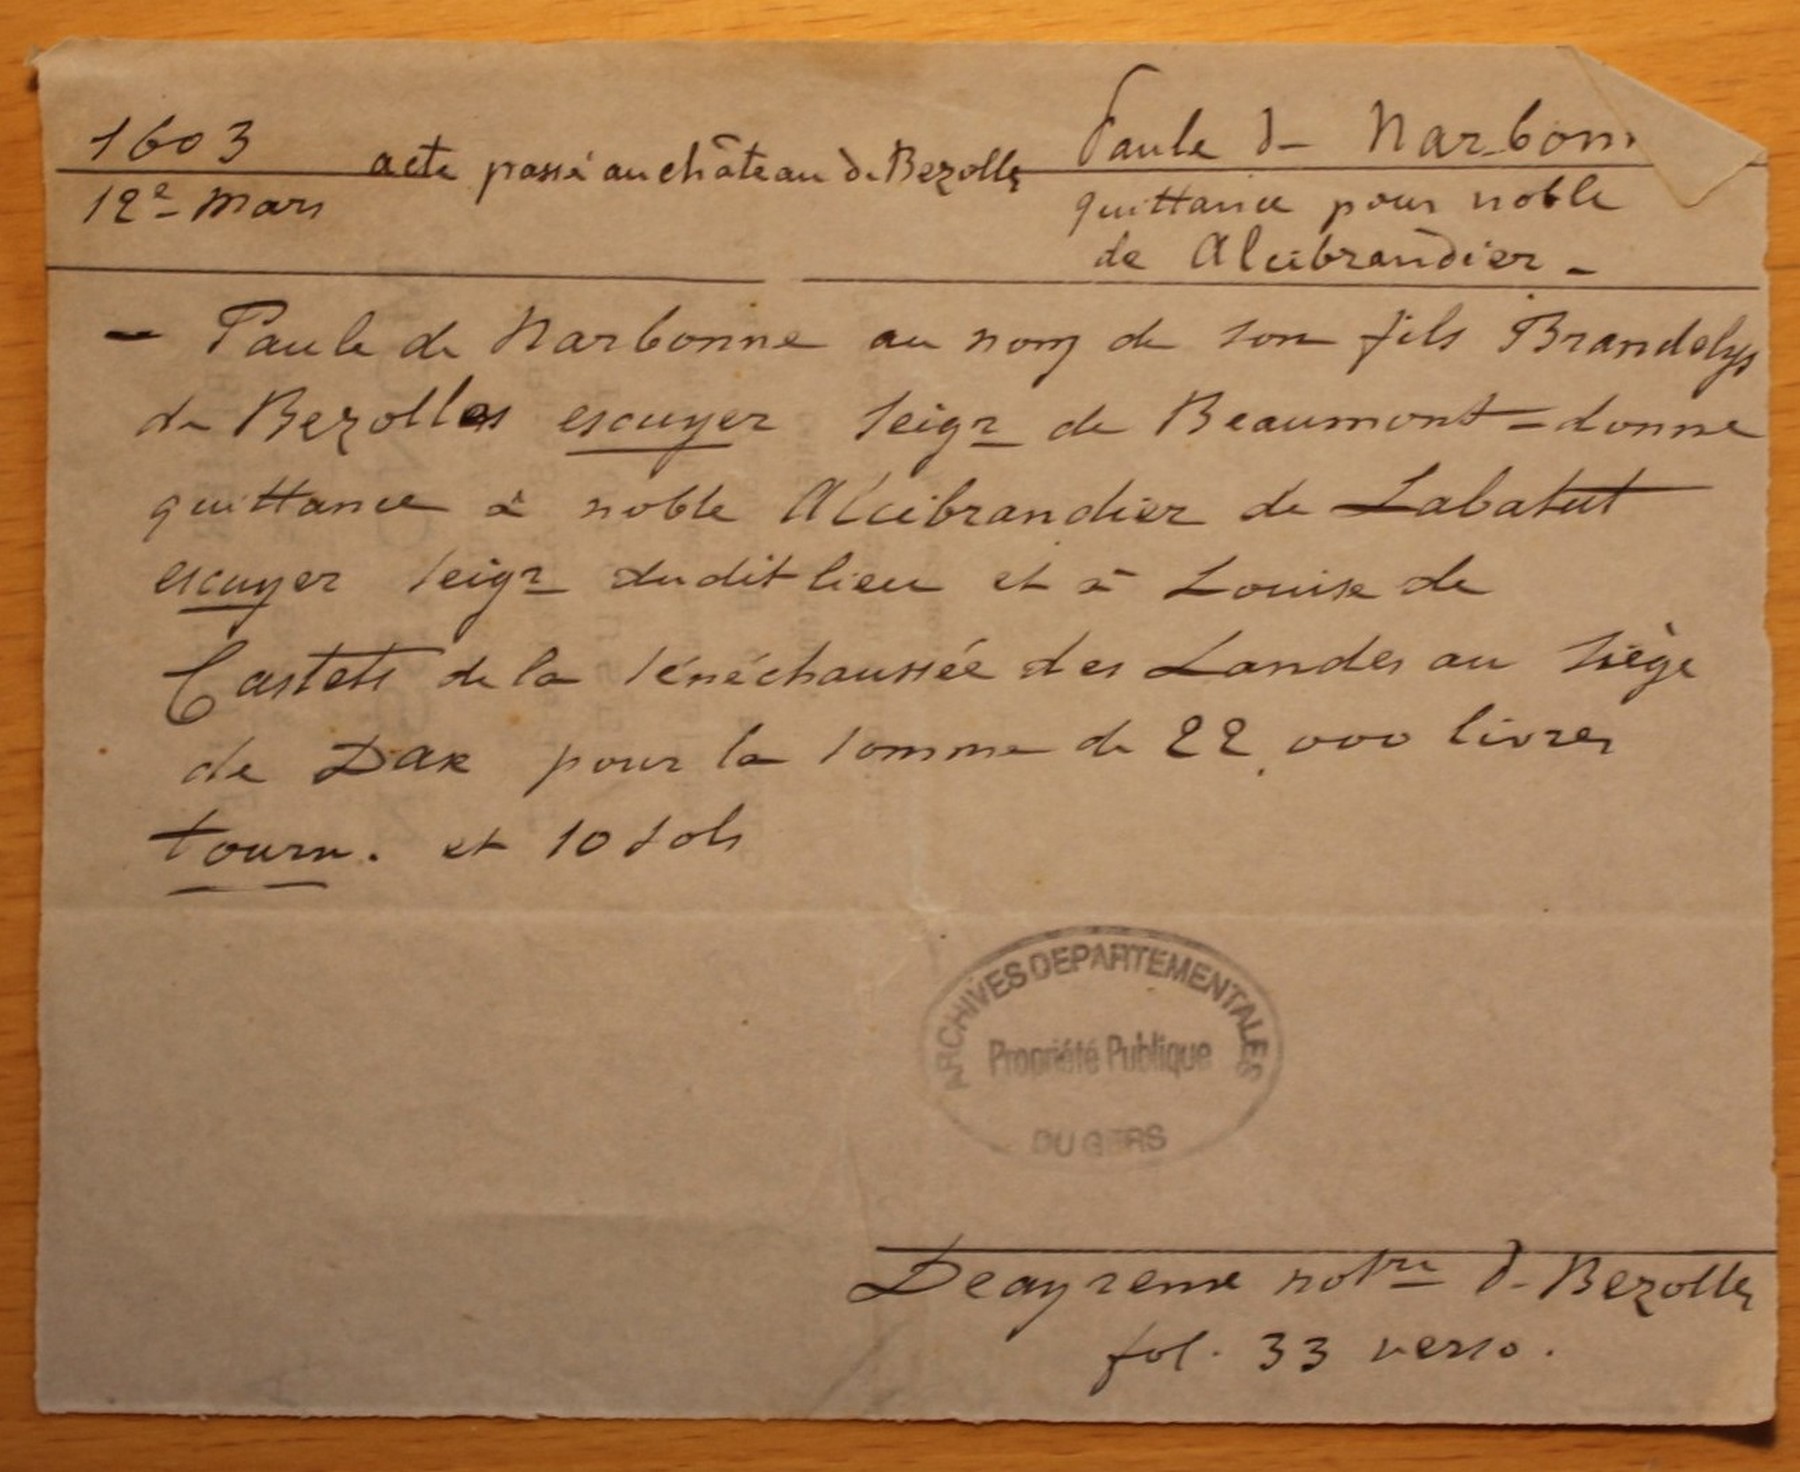 1603
12e mars
acte passé au château de Bezolles
Paule de Narbonn
quittance pour noble
de Alcibrandier -
- Paule de Narbonne au nom de son fils Brandelys
de Bezolles escuyer seigr de Beaumont = donne
quittance à noble Alcibrandier de Labatut
escuyer seigr dudit lieu et à Louise de
Castets de la sénéchaussée des Landes au siège
de Dax pour la somme de 22,000 livres
tourn. et 10 sols
ARCHIVES DEPARTEMENTALES
Propriété Publique
DU GERS
Deayreme notre de Bezolles
fol. 33 verso.